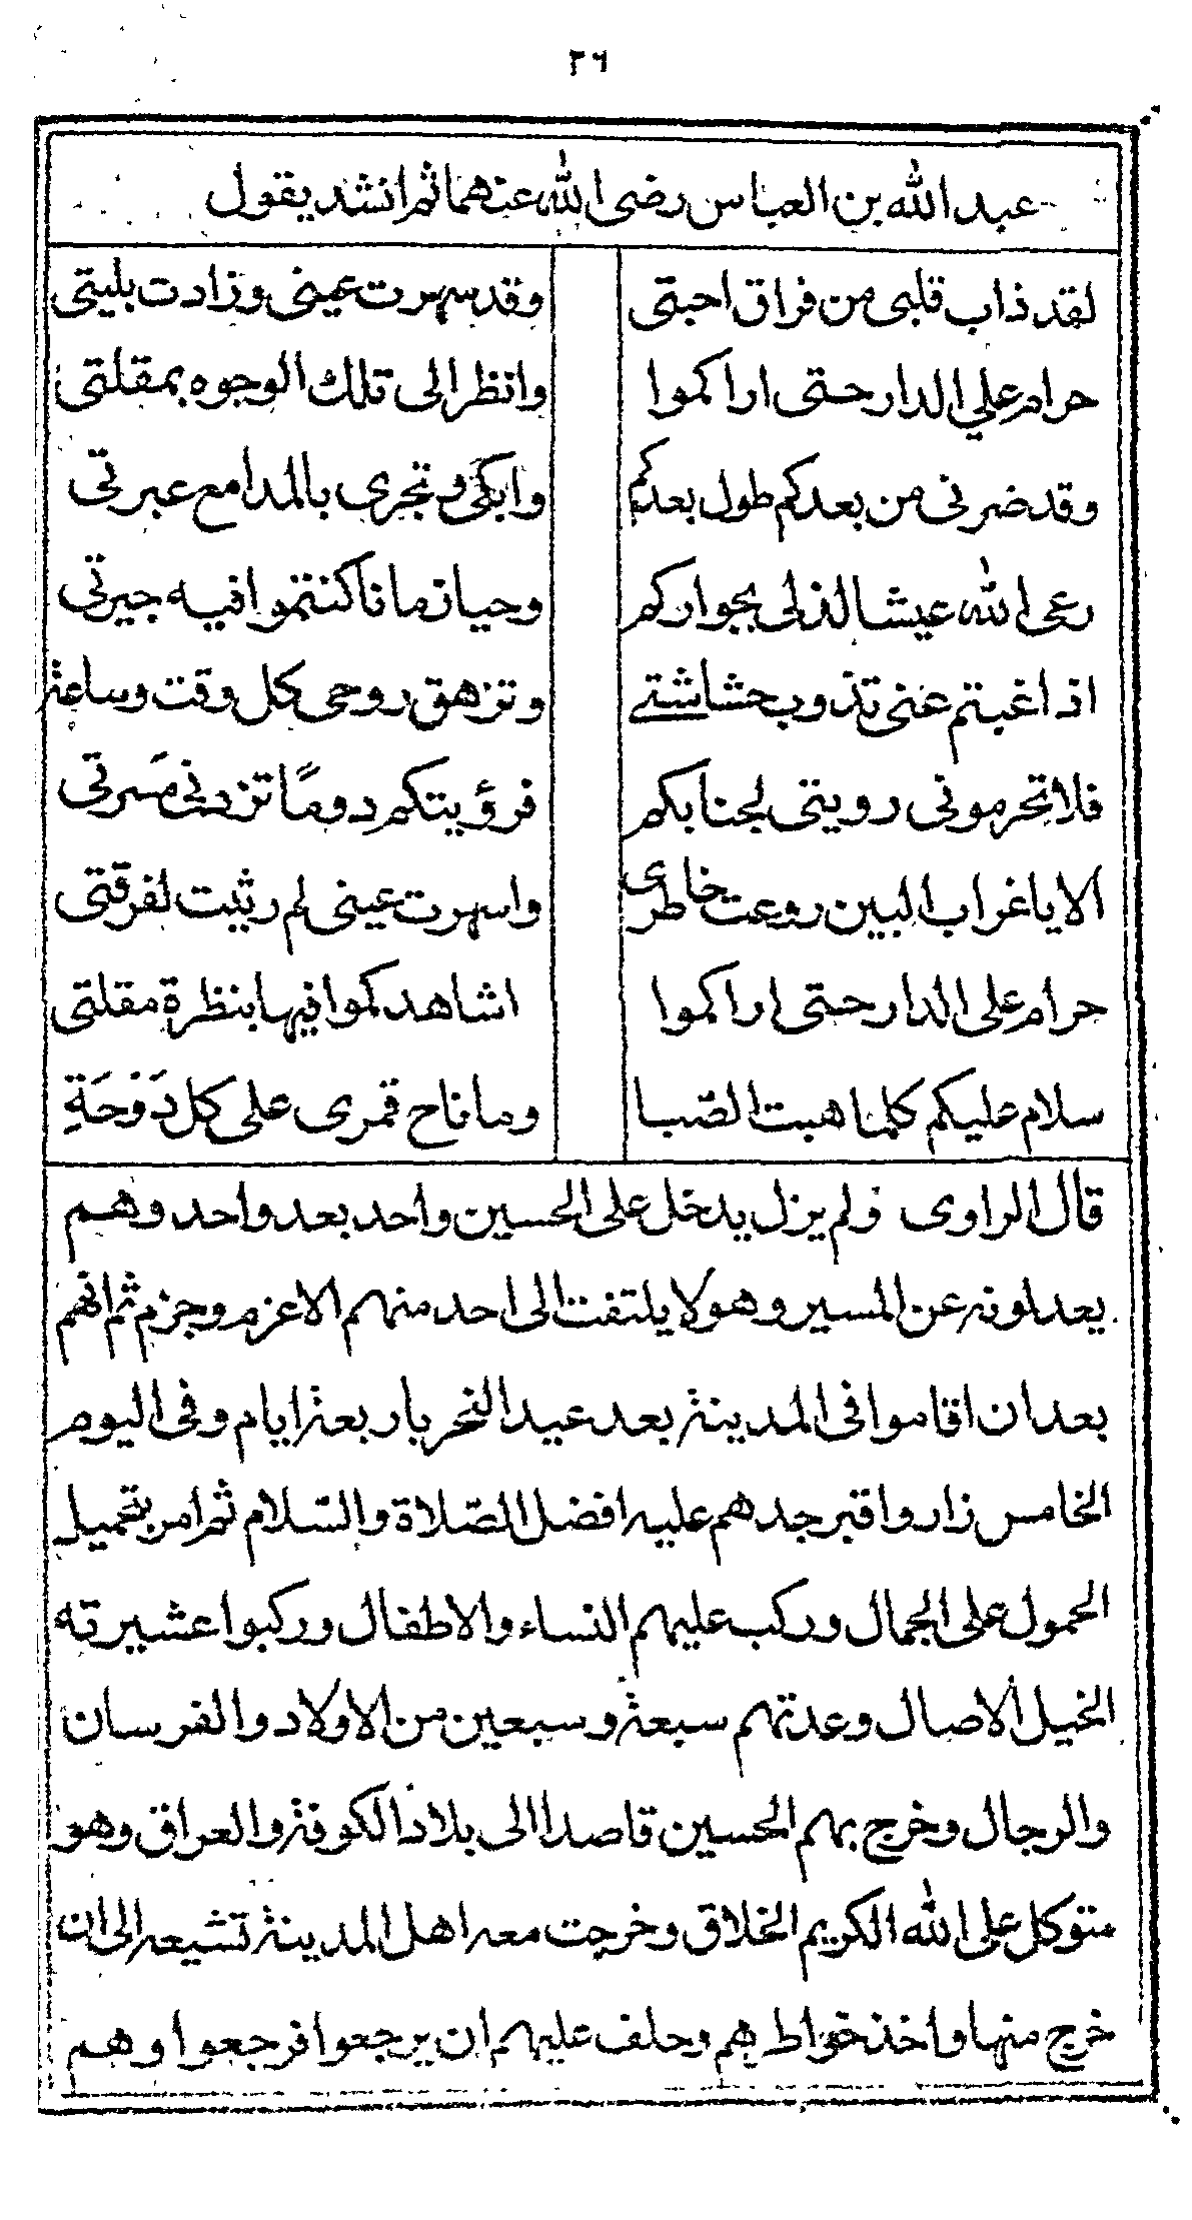 ٢٦
عبد الله بن العباس رضى الله عنهما ثم انشد يقول
لقد ذاب قلبى من فراق احبتى وقد سهرت عينى وزادت بليتى
حرام علي الدار حتى اراكموا وانظر الى تلك الوجوه بمقلتى
وقد ضرنى من بعدكم طول بعدكم وابكى وتجرى بالمدامع عبرتى
رعى الله عيشا لذلى بجواركم وحيا زمانا كنتموا فيه جيرتى
اذا غبتم عنى تذوب حشاشتے وتزهق روحى كل وقت وساعة
فلا تحرمونى رويتى لجنابكم فرؤيتكم دومًا تزدنى مَسرتى
الا يا غراب البين روعت خاطرى واسهرت عينى لم رثيت لفرقتى
حرام على الدار حتى اراكموا اشاهدكموا فيها بنظرة مقلتى
سلام عليكم كلما هبت الصّبا وما ناح قمرى على كل دَوْحَةِ
قال الراوى ولم يزل يدخل على الحسين واحد بعد واحد وهم
يعدلونه عن المسير وهو لا يلتفت الى احد منهم الا عزم وجزم ثم انهم
بعد ان اقاموا فى المدينة بعد عيد النحر باربعة ايام وفى اليوم
الخامس زاروا قبر جدهم عليه افضل الصّلاة والسّلام ثم امر بتحميل
الحمول على الجمال وركب عليهم النساء والاطفال وركبوا عشيرته
الخيل الاصال وعدتهم سبعة وسبعين من الاولاد والفرسان
والرجال وخرج بهم الحسين قاصدا الى بلاد الكوفة والعراق وهو
متوكل على الله الكريم الخلاق وخرجت معه اهل المدينة تشيعه الى ان
خرج منها واخذ خواطرهم وحلف عليهم ان يرجعوا فرجعوا وهم